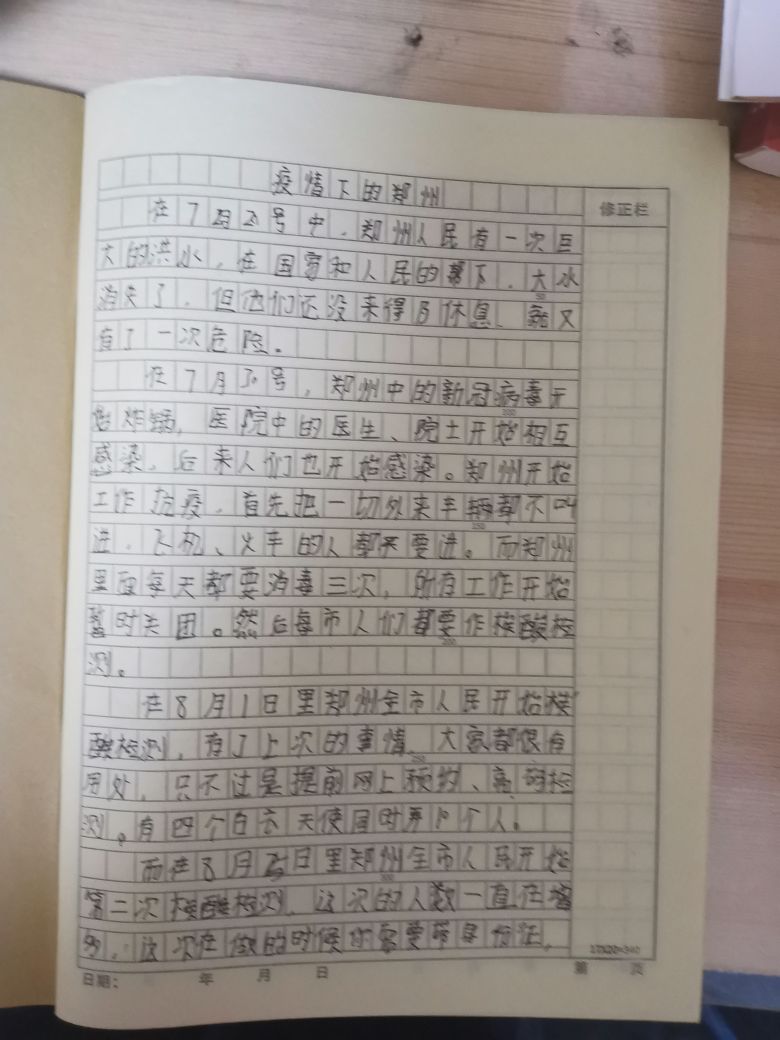 疫情下的郑州
修正栏
在7月20号中，郑州人民有一次巨
大的洪水，在国家和人民的下，大水
消失了，但他们还没来得及休息、就又
有了一次危险。
在7月30号，郑州中的新冠病毒开
始炸锅，医院中的医生、院士开始相互
感染，后来人们也开始感染。郑州开始
工作抗疫，首先把一切外来车辆都不叫
进，飞机、火车的人都不要进。而郑州
里面每天都要消毒三次，所有工作开始
暂时关团。然后每市人们都要作核酸检
测。
在8月1日里郑州全市人民开始核
酸检测，有了上次的事情、大家都很有
用处，只不过是提前网上预约、高的检
测。有四个白衣天使同时弄10个人。
而在8月25日里郑州全市人民开始
第二次核酸检测、这次的人数一直在增
多，这次在做的时候你需要带身份证，
日期： 年 月 日 第 页